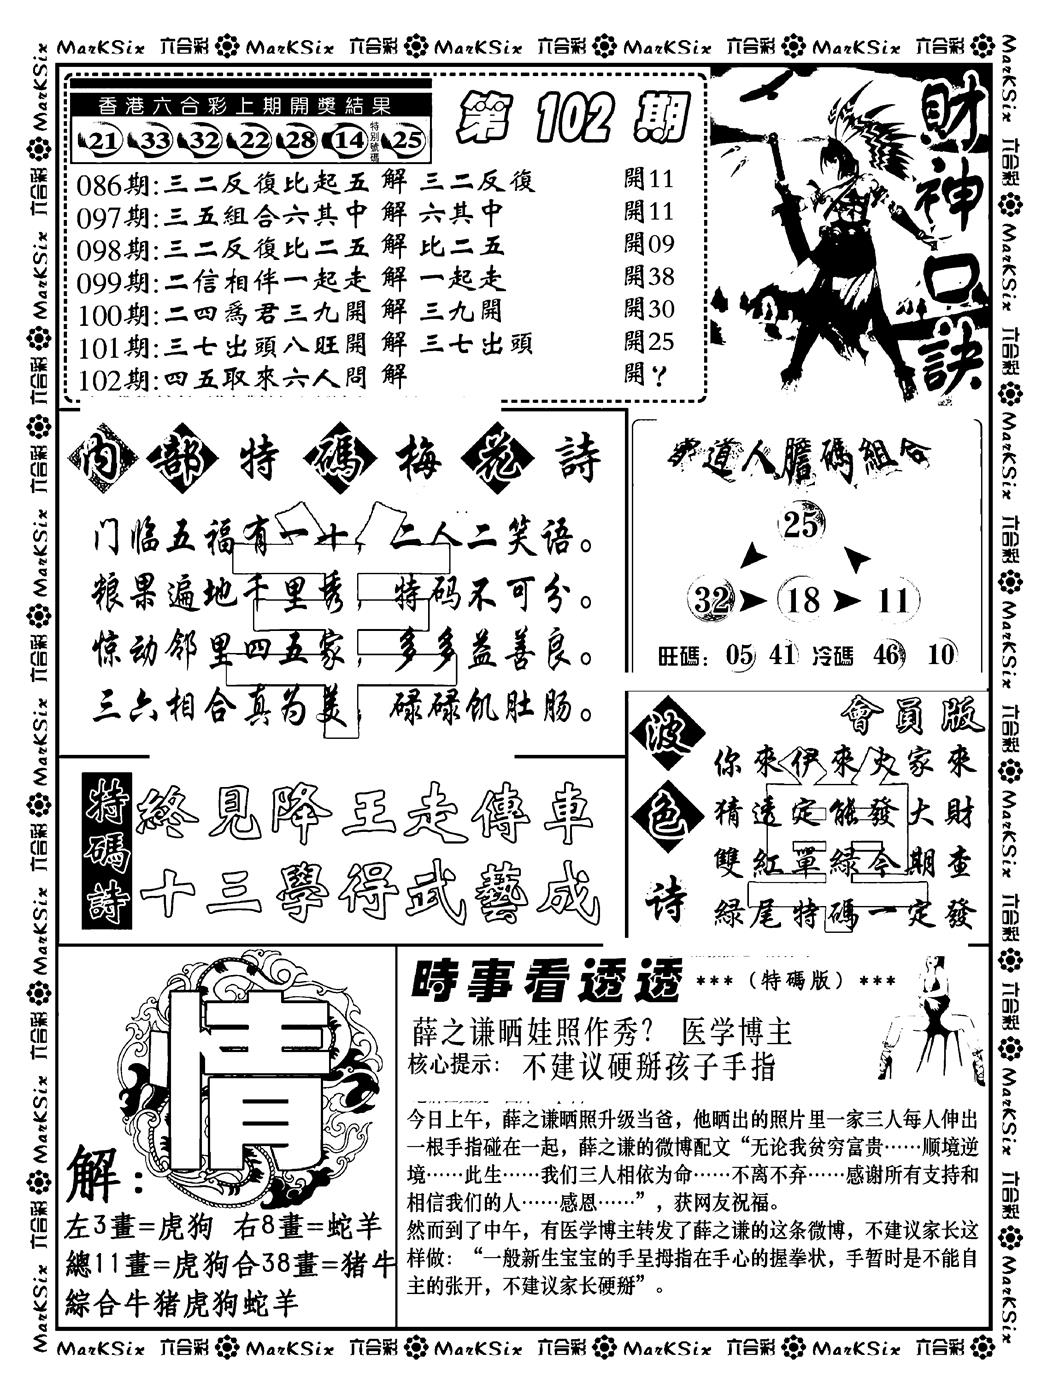 MarKSix 六合彩 MarKSix 六合彩 MarKSix 六合彩 MarKSix 六合彩 MarKSix 六合彩
香港六合彩上期開獎結果
21 33 32 22 28 14 特別號碼 25
第 102 期
財神口訣
086期:三二反復比起五 解 三二反復 開11
097期:三五組合六其中 解 六其中 開11
098期:三二反復比二五 解 比二五 開09
099期:二信相伴一起走 解 一起走 開38
100期:二四爲君三九開 解 三九開 開30
101期:三七出頭八旺開 解 三七出頭 開25
102期:四五取來六人問 解 開?
內部特碼梅花詩
门临五福有一十，二人二笑语。
粮果遍地千里秀，特码不可分。
惊动邻里四五家，多多益善良。
三六相合真为美，碌碌饥肚肠。
道人膽碼組合
25
32 18 11
旺碼：05 41 冷碼 46 10
特碼詩
終見降王走傳車
十三學得武藝成
波色诗
會員版
你來伊來火家來
猜透定能發大財
雙紅單綠今期查
綠尾特碼一定發
情
解：
左3畫=虎狗 右8畫=蛇羊
總11畫=虎狗合38畫=猪牛
綜合牛猪虎狗蛇羊
時事看透透 ***（特碼版）***
薛之谦晒娃照作秀？ 医学博主
核心提示： 不建议硬掰孩子手指
今日上午，薛之谦晒照升级当爸，他晒出的照片里一家三人每人伸出
一根手指碰在一起，薛之谦的微博配文“无论我贫穷富贵……顺境逆
境……此生……我们三人相依为命……不离不弃……感谢所有支持和
相信我们的人……感恩……”，获网友祝福。
然而到了中午，有医学博主转发了薛之谦的这条微博，不建议家长这
样做：“一般新生宝宝的手呈拇指在手心的握拳状，手暂时是不能自
主的张开，不建议家长硬掰”。
MarKSix 六合彩 MarKSix 六合彩 MarKSix 六合彩 MarKSix 六合彩 MarKSix 六合彩